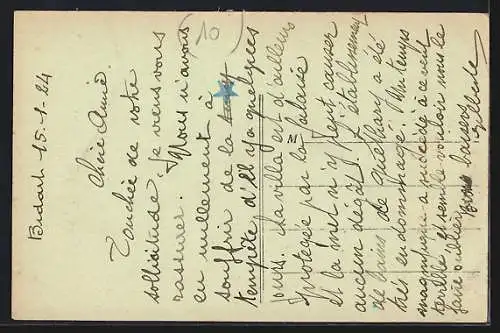 Bidart 15-1-24
10
Chère Amie.
Touchée de votre
sollicitude je viens vous
rassurer. Nous n'avons
eu nullement à
souffrir de la
tempête d'il y a quelques
jours. La villa est d'ailleurs
protégée par la falaise
M
et la mer n'y peut causer
aucun dégât. L'établissement
de bains de Guéthary a été
très endommagé. Un temps
magnifique a succédé à ce vent
terrible et semble vouloir nous le
faire oublier. Bons baisers